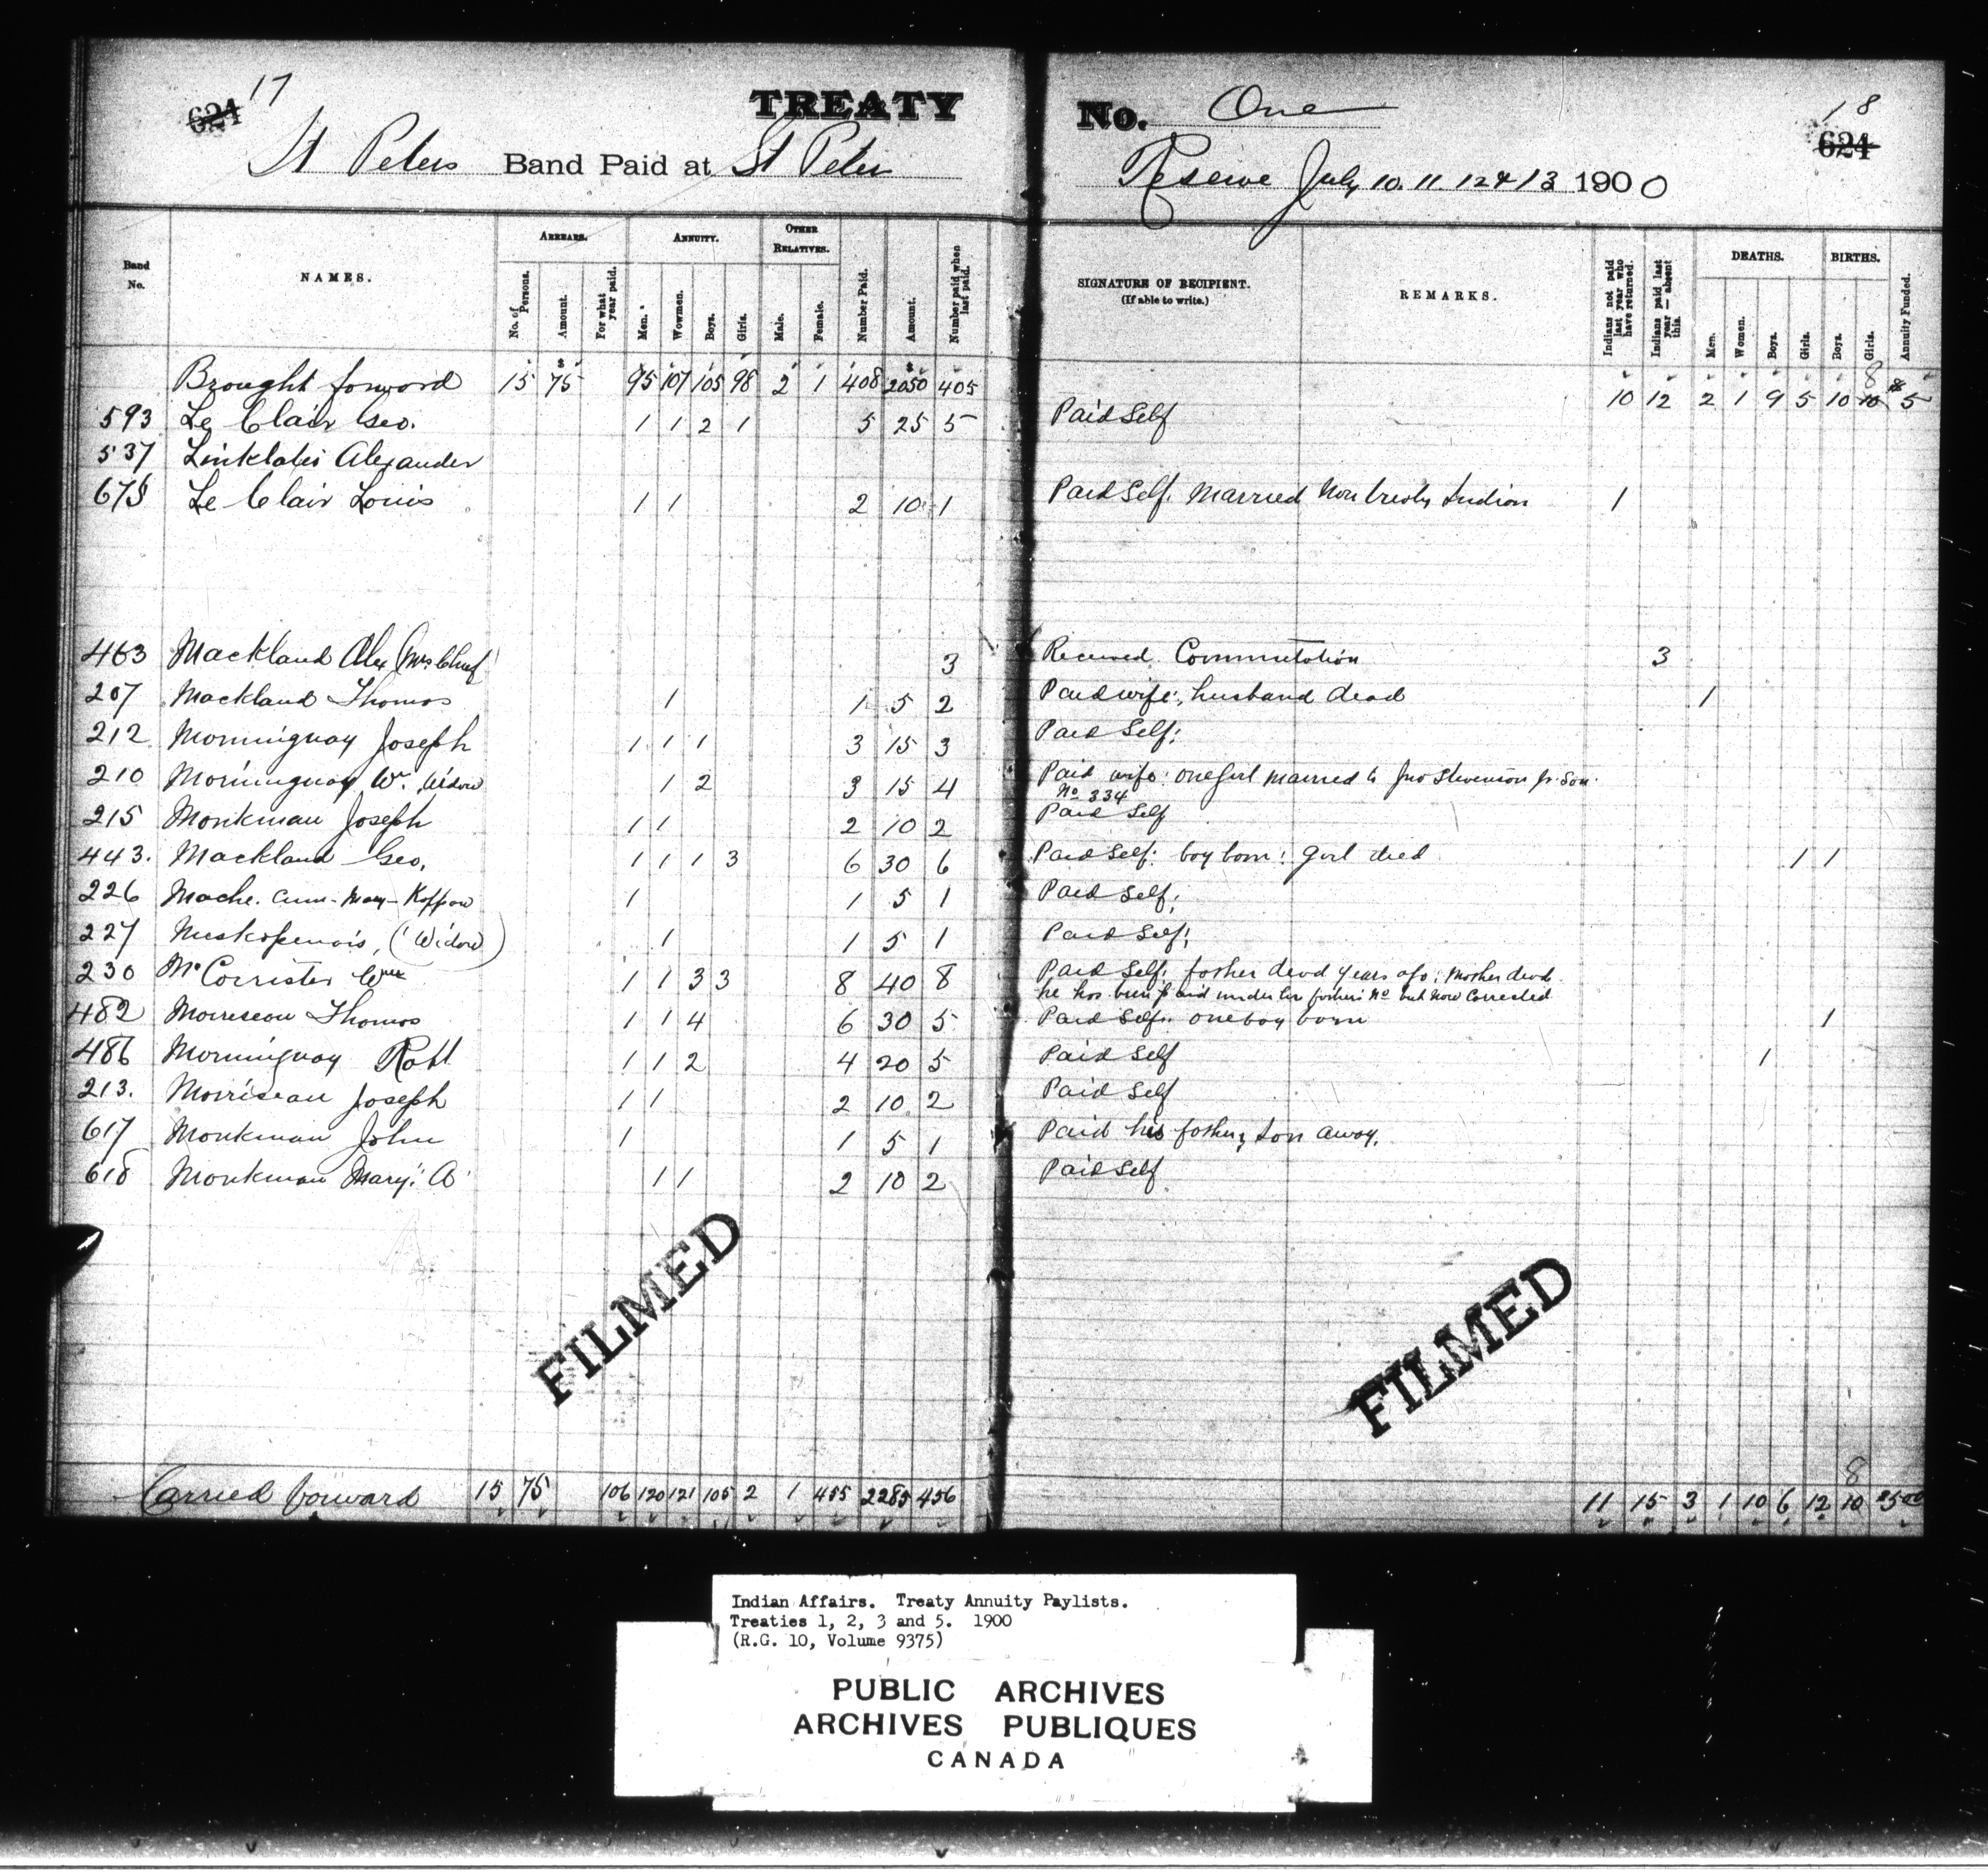 17
624
TREATY No. One
18
624
St Peters Band Paid at St Peter Reserve July 10. 11 12 & 13 1900
Band No.
NAMES.
ARREARS.
No. of Persons.
Amount.
For what year paid.
ANNUITY.
Men.
Wowmen.
Boys.
Girls.
OTHER RELATIVES.
Male.
Female.
Number Paid.
Amount.
Number paid when last paid.
SIGNATURE OF RECIPIENT.
(If able to write.)
REMARKS.
Indians not paid last year who have returned.
Indians paid last year — absent this.
DEATHS.
Men.
Women.
Boys.
Girls.
BIRTHS.
Boys.
Girls.
Annuity Funded.
Brought forward 15 75 95 107 105 98 2 1 408 2050 405 10 12 2 1 9 5 10 10 8 $5
593 Le Clair Geo. 1 1 2 1 5 25 5 Paid Self
537 Linklater Alexander
675 Le Clair Louis 1 1 2 10 1 Paid Self. Married Non treaty Indian 1
463 Mackland Alex (Mrs Chief) 3 Received Commutation 3
207 Mackland Thomas 1 1 5 2 Paid wife; husband dead 1
212 Morninguay Joseph 1 1 1 3 15 3 Paid Self;
210 Morninguay Wm. Widow 1 2 3 15 4 Paid wife: one girl married to Jno Stevenson Jr. Son
No 334
215 Monkman Joseph 1 1 2 10 2 Paid Self
443. Mackland Geo. 1 1 1 3 6 30 6 Paid Self: boy born: girl died 1 1
226 Mache. Cum - Mary - Koppow 1 1 5 1 Paid Self;
227 Muskopenais, (Widow) 1 1 5 1 Paid Self;
230 McCorrister Wm 1 1 3 3 8 40 8 Paid Self: father dead years ago; Mother dead
he has been paid under his father's No but now Corrected
482 Morreseau Thomas 1 1 4 6 30 5 Paid Self: one boy born 1
486 Morninguay Robt 1 1 2 4 20 5 Paid Self 1
213. Morriseau Joseph 1 1 2 10 2 Paid Self
617 Monkman John 1 1 5 1 Paid his father, son away.
618 Monkman Mary: A 1 1 2 10 2 Paid Self
FILMED
FILMED
Carried forward 15 75 106 120 121 105 2 1 455 2285 456 11 15 3 1 10 6 12 10 8 25 00
Indian Affairs. Treaty Annuity Paylists.
Treaties 1, 2, 3 and 5. 1900
(R.G. 10, Volume 9375)
PUBLIC ARCHIVES
ARCHIVES PUBLIQUES
CANADA